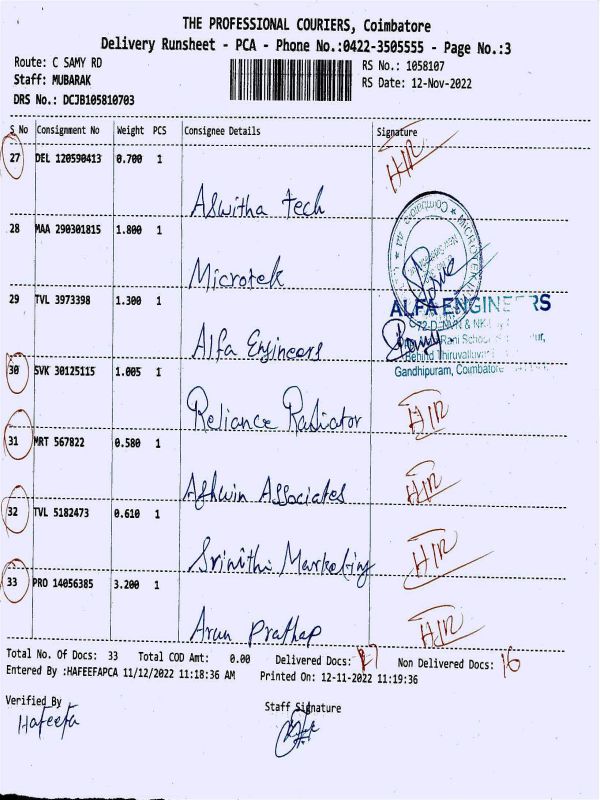 THE PROFESSIONAL COURIERS, Coimbatore
Delivery Runsheet - PCA - Phone No.:0422-3505555 - Page No.:3
Route: C SAMY RD
RS No.: 1058107
Staff: MUBARAK
RS Date: 12-Nov-2022
DRS No.: DCJB105810703
S No Consignment No Weight PCS Consignee Details Signature
27 DEL 120590413 0.700 1 H/R
Aswitha tech
28 MAA 290301815 1.800 1
Microtek
29 TVL 3973398 1.300 1
ALFA ENGINEERS
Alfa Engineers
Behind Thiruvalluvar
Gandhipuram, Coimbatore
30 SVK 30125115 1.005 1
Reliance Radiator H/R
31 MRT 567822 0.580 1
Ashwin Associates H/R
32 TVL 5182473 0.610 1
Srinithi Marketing H/R
33 PRO 14056385 3.200 1
Arun Prathap H/R
Total No. Of Docs: 33 Total COD Amt: 0.00 Delivered Docs: 17 Non Delivered Docs: 16
Entered By :HAFEEFAPCA 11/12/2022 11:18:36 AM Printed On: 12-11-2022 11:19:36
Verified By Staff Signature
Hafeefa